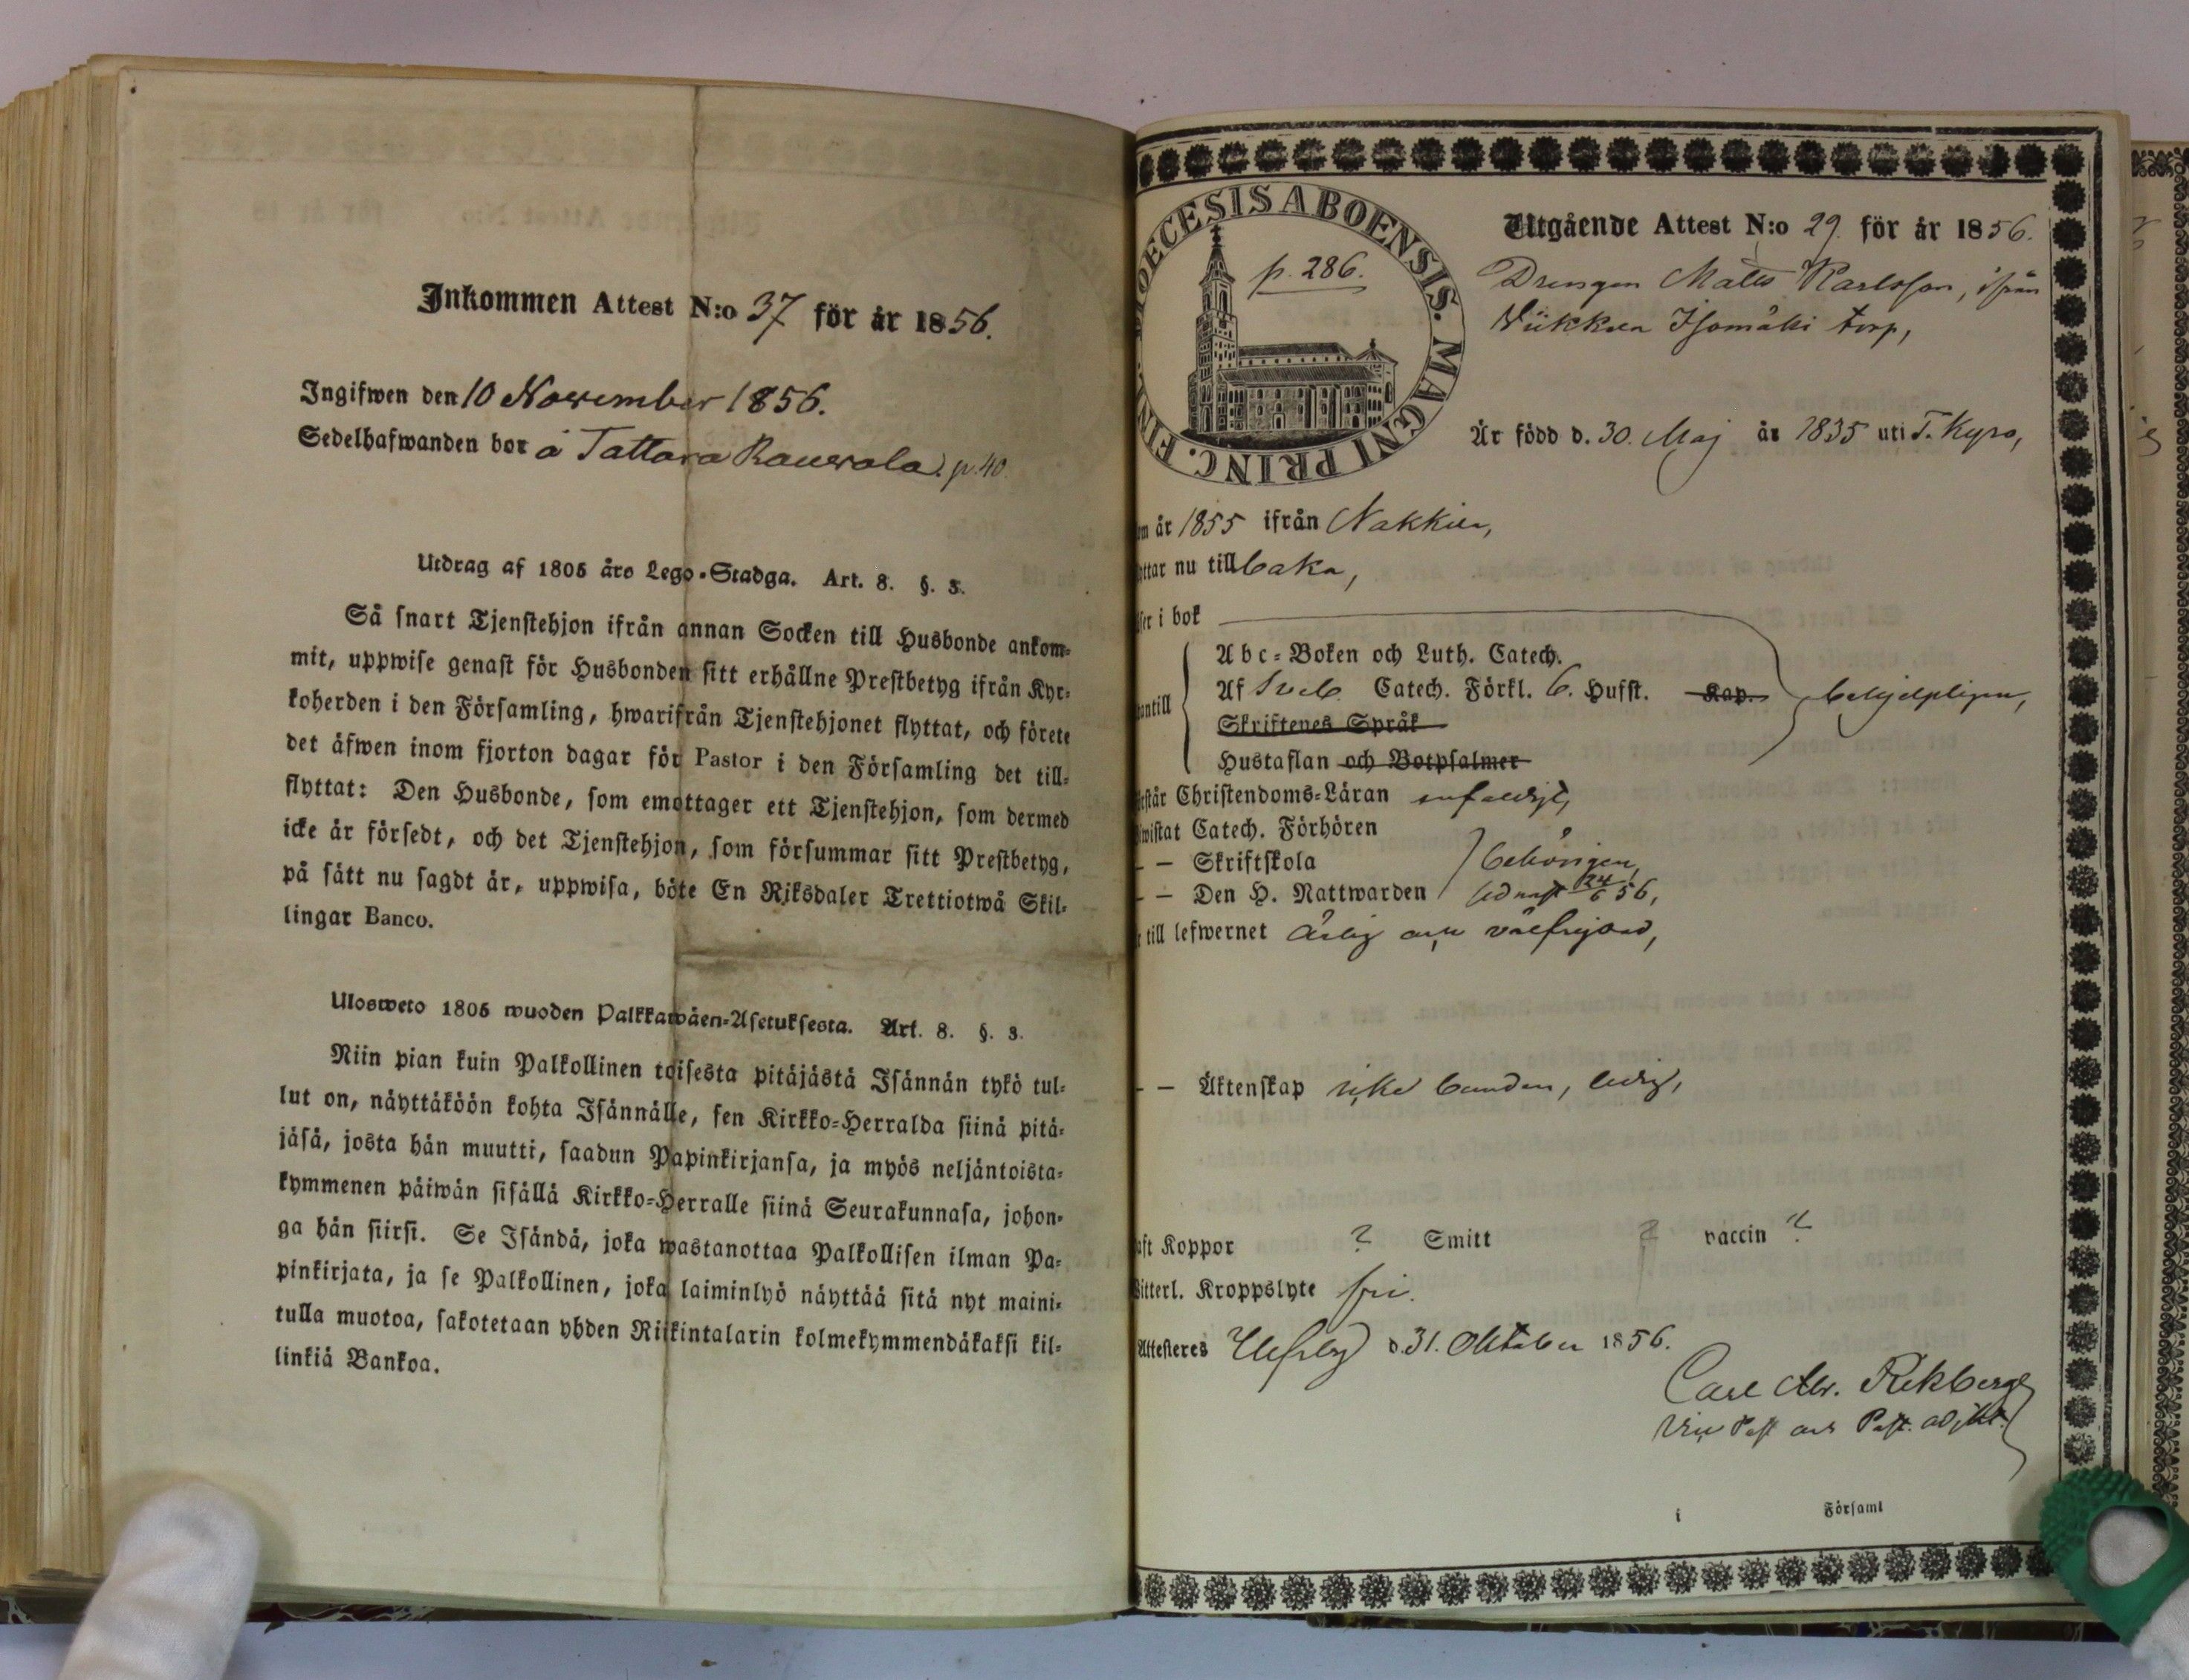 Inkommen Attest N:o 37 för år 1856.
Ingifwen den 10 November 1856.
Sedelhafwanden bor å Tattara Rauwola. p. 40.
Utdrag af 1805 års Lego-Stadga. Art. 8. §. 3.
Så snart Tjenstehjon ifrån annan Socken till Husbonde ankom-
mit, uppwise genast för Husbonden sitt erhållne Prestbetyg ifrån Kyr-
koherden i den Församling, hwarifrån Tjenstehjonet flyttat, och förete
det äfwen inom fjorton dagar för Pastor i den Församling det till-
flyttat: Den Husbonde, som emottager ett Tjenstehjon, som dermed
icke är försedt, och det Tjenstehjon, som försummar sitt Prestbetyg,
på sätt nu sagdt är, uppwisa, böte En Riksdaler Trettiotwå Skil-
lingar Banco.
Ulosweto 1805 wuoden Palkkawäen-Asetuksesta. Art. 8. §. 3.
Niin pian kuin Palkollinen toisesta pitäjästä Isännän tykö tul-
lut on, näyttäköön kohta Isännälle, sen Kirkko-Herralda siinä pitä-
jäsä, josta hän muutti, saadun Papinkirjansa, ja myös neljäntoista-
kymmenen päiwän sisällä Kirkko-Herralle siinä Seurakunnasa, johon-
ga hän siirsi. Se Isändä, joka wastanottaa Palkollisen ilman Pa-
pinkirjata, ja se Palkollinen, joka laiminlyö näyttää sitä nyt maini-
tulla muotoa, sakotetaan yhden Riikintalarin kolmekymmendäkaksi kil-
linkiä Bankoa.
DIOECESIS ABOENSIS. MAGNI PRINC. FINL.
p. 286.
Utgående Attest N:o 29. för år 1856.
Drengen Matts Karlsson, ifrån
Isomäki torp,
Är född d. 30. Maj år 1835 uti T. Kyro,
om år 1855 ifrån Nakkila,
yttar nu tillbaka,
äser i bok
antill
Abc-Boken och Luth. Catech.
Af Sveb. Catech. Förkl. 6. Hufst. Kap. behjelpligen,
Skriftenes Språk
Hustaflan och Botpsalmer
rstår Christendoms-Läran enfaldigt,
wistat Catech. Förhören
— — Skriftskola behörigen,
— — Den H. Nattwarden sednast 24/6 56,
r till lefwernet ärlig och välfrejdad,
— — Äktenskap icke bunden, ledig,
aft Koppor ? Smitt ? vaccin ?
Witterl. Kroppslyte fri.
Attesteres Ulfsby d. 31. Oktober 1856.
Carl Rekberg
Vice Past. och Past. adjkt.
i Församl